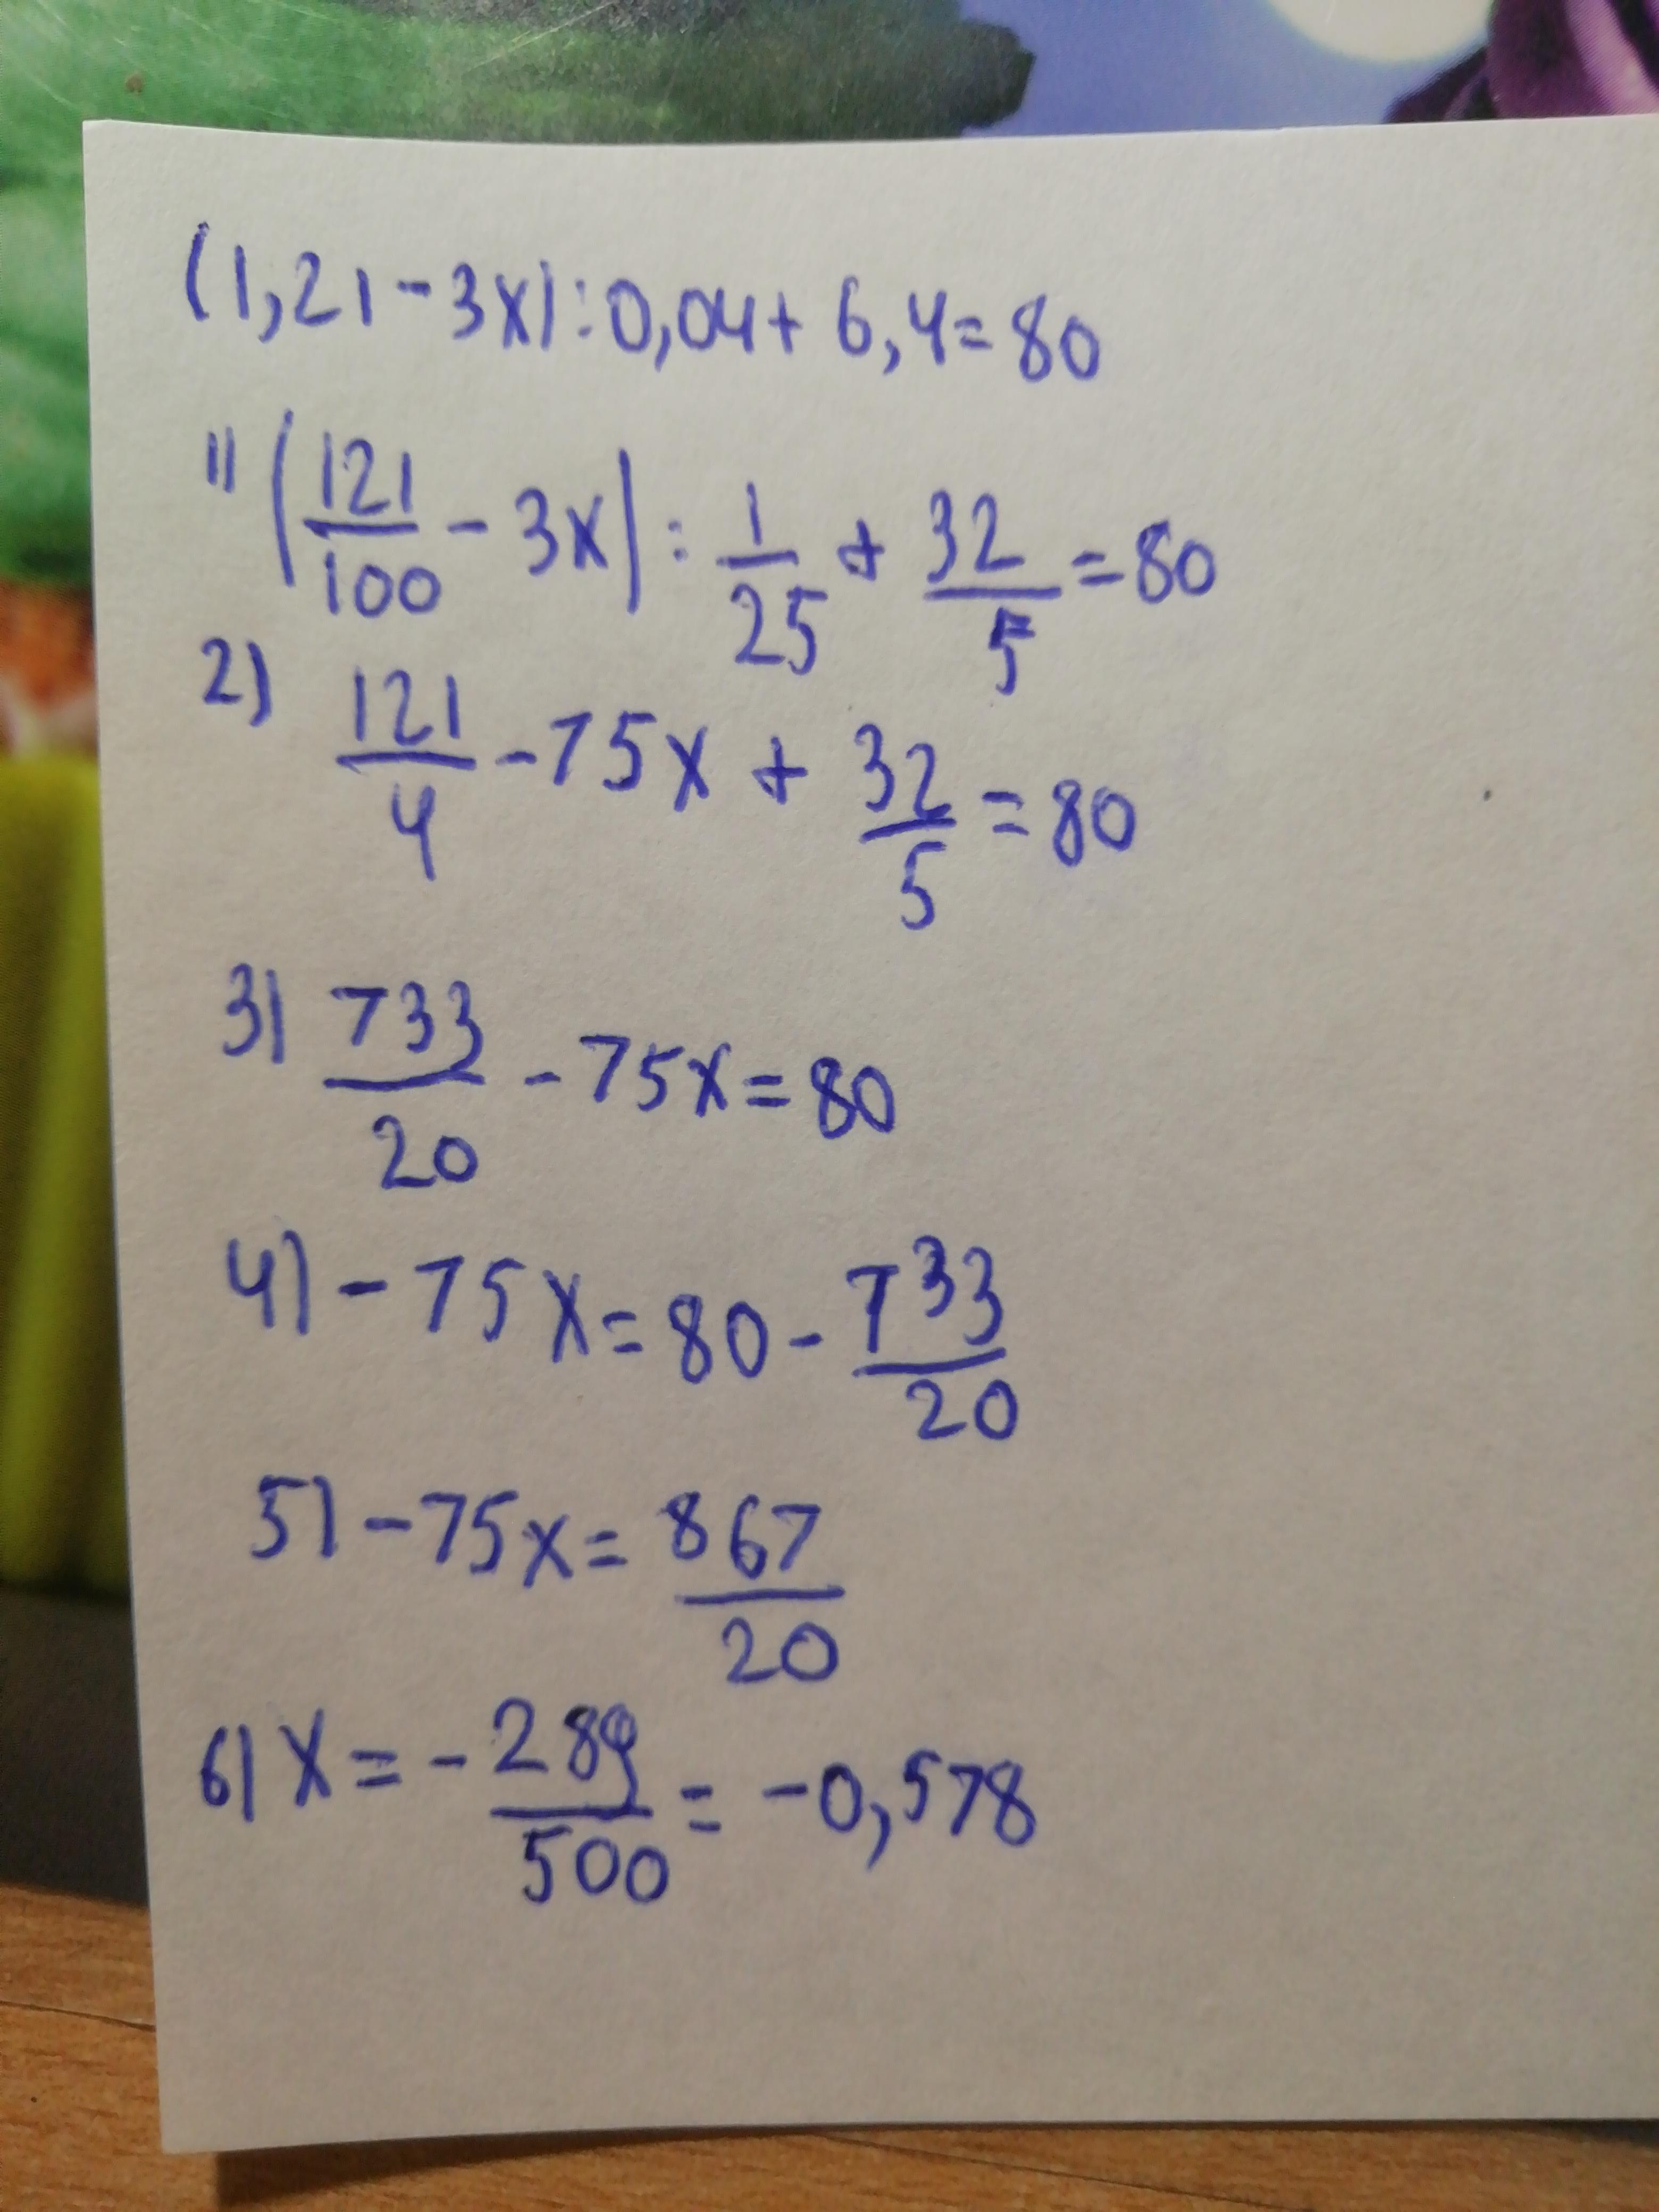 (1,21-3x):0,04+6,4=80
1) (121/100 - 3x) : 1/25 + 32/5 = 80
2) 121/4 - 75x + 32/5 = 80
3) 733/20 - 75x = 80
4) - 75x = 80 - 733/20
5) - 75x = 867/20
6) x = - 289/500 = -0,578